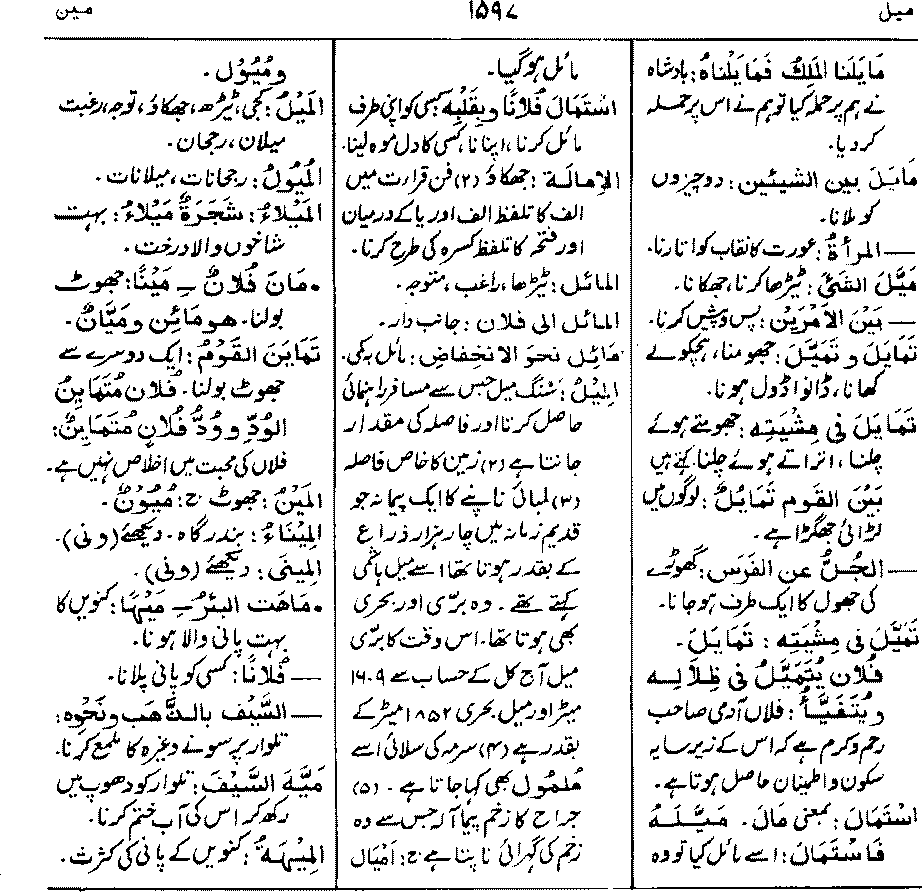 میل
۱۵۹۷
مین
مَایَلَنَا المَلِکُ فَمَایَلْنَاهُ: بادشاہ
نے ہم پر حملہ کیا تو ہم نے اس پر حملہ
کر دیا۔
مَایَلَ بین الشیئین: دو چیزوں
کو ملانا۔
— المرأةَ: عورت کا نقاب کو اتارنا۔
مَیَّلَ الشَیَٔ: ٹیڑھا کرنا، جھکانا۔
— بَیْنَ الاَمْرَیْنِ: پس و پیش کرنا۔
تَمَایَلَ و تَمَیَّلَ: جھومنا، ہچکولے
کھانا، ڈانواڈول ہونا۔
تَمَایَلَ فی مِشْیَتِه: جھومتے ہوئے
چلنا، اتراتے ہوئے چلنا کہتے ہیں
بَیْنَ القَومِ تَمَایُلٌ: لوگوں میں
لڑائی جھگڑا ہے۔
— الجُلُّ عن الفَرَسِ: گھوڑے
کی جھول کا ایک طرف ہو جانا۔
تَمَیَّلَ فی مِشْیَتِه: تَمَایَلَ۔
فُلَان یُتَمَیَّلُ فی ظِلَالِه
و یُتَفَیَّأُ: فلاں آدمی صاحب
رحم و کرم ہے کہ اس کے زیر سایہ
سکون و اطمنان حاصل ہوتا ہے۔
اسْتَمَالَ: بمعنی مَالَ۔ مَیَّلَهُ
فَاسْتَمَالَ: اسے مائل کیا تو وہ
مائل ہو گیا۔
اسْتَمَالَ فُلَانًا و بِقَلْبِه: کسی کو اپنی طرف
مائل کرنا، اپنانا، کسی کا دل موہ لینا۔
الإمَالَة: جھکاؤ (۲) فن قراءت میں
الف کا تلفظ الف اور یا کے درمیان
اور فتحہ کا تلفظ کسرہ کی طرح کرنا۔
المائل: ٹیڑھا، راغب، متوجہ۔
المائل الی فلان: جانب دار۔
مَائِل نحوَ الانخفاض: مائل بہ کمی۔
المِیْلُ: سنگ میل جس سے مسافر راہنمائی
حاصل کرتا اور فاصلہ کی مقدار
جانتا ہے (۲) زمین کا خاص فاصلہ
(۳) لمبائی ناپنے کا ایک پیمانہ جو
قدیم زمانہ میں چار ہزار ذراع
کے بقدر ہوتا تھا اسے میل ہاشمی
کہتے تھے۔ وہ برّی اور بحری
بھی ہوتا تھا۔ اس وقت کا برّی
میل آج کل کے حساب سے ۱۶۰۹
میٹر اور میل بحری ۱۸۵۲ میٹر کے
بقدر ہے (۴) سرمہ کی سلائی اسے
مُلمُول بھی کہا جاتا ہے۔ (۵)
جراح کا زخم پیما آلہ جس سے وہ
زخم کی گہرائی ناپتا ہے ج: اَمْیَال
و مُیُوْل۔
المَیْلُ: کجی، ٹیڑھ، جھکاؤ، توجہ، رغبت
میلان، رجحان۔
المُیُولُ: رجحانات، میلانات۔
المَیْلَاءُ: شَجَرَةٌ مَیْلَاءُ: بہت
شاخوں والا درخت۔
• مَانَ فُلَانٌ ـِ مَیْنًا: جھوٹ
بولنا۔ هو مَائِن و مَیَّانٌ۔
تَمَایَنَ القَوْمُ: ایک دوسرے سے
جھوٹ بولنا۔ فُلَان مُتَمَایِنُ
الوُدِّ و وُدُّ فُلَانٍ مُتَمَایِنٌ:
فلاں کی محبت میں اخلاص نہیں ہے۔
المَیْنُ: جھوٹ ج: مُیُوْنٌ۔
المِیْنَاءُ: بندرگاہ۔ دیکھئے (ونی)۔
المِینَی: دیکھئے (ونی)۔
• مَاهَتِ البئرُ ـِ مَیْهًا: کنویں کا
بہت پانی والا ہونا۔
— فُلَانًا: کسی کو پانی پلانا۔
— السَّیْفَ بالذَّهَبِ و نَحْوِه:
تلوار پر سونے وغیرہ کا ملمع کرنا۔
مَیَّهَ السَّیْفَ: تلوار کو دھوپ میں
رکھ کر اس کی آب ختم کرنا۔
المِیْهَةُ: کنویں کے پانی کی کثرت۔